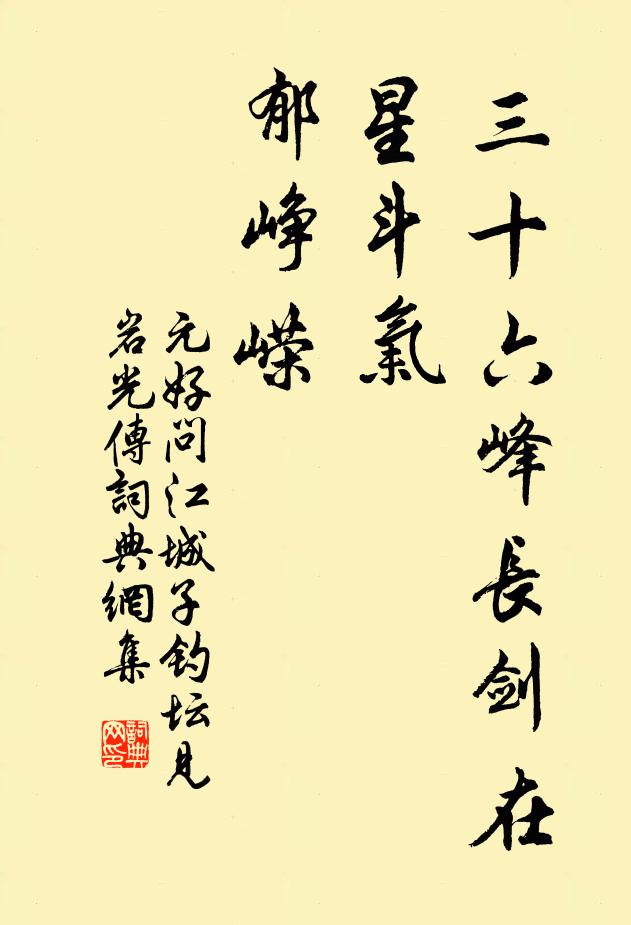 三十六峰長剑在
星斗氣
郁峥嵘
元好问江城子钓坛見
岩光傳詞典網集
詞典网印